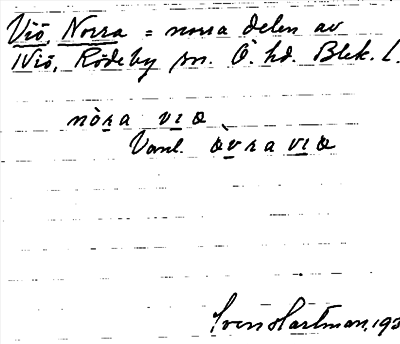 Viö, Norra = norra delen av
Viö, Rödeby sn. Ö. hd. Blek. l.
nòra viə
Vanl. ə̀vra viə
Sven Hartman, 193